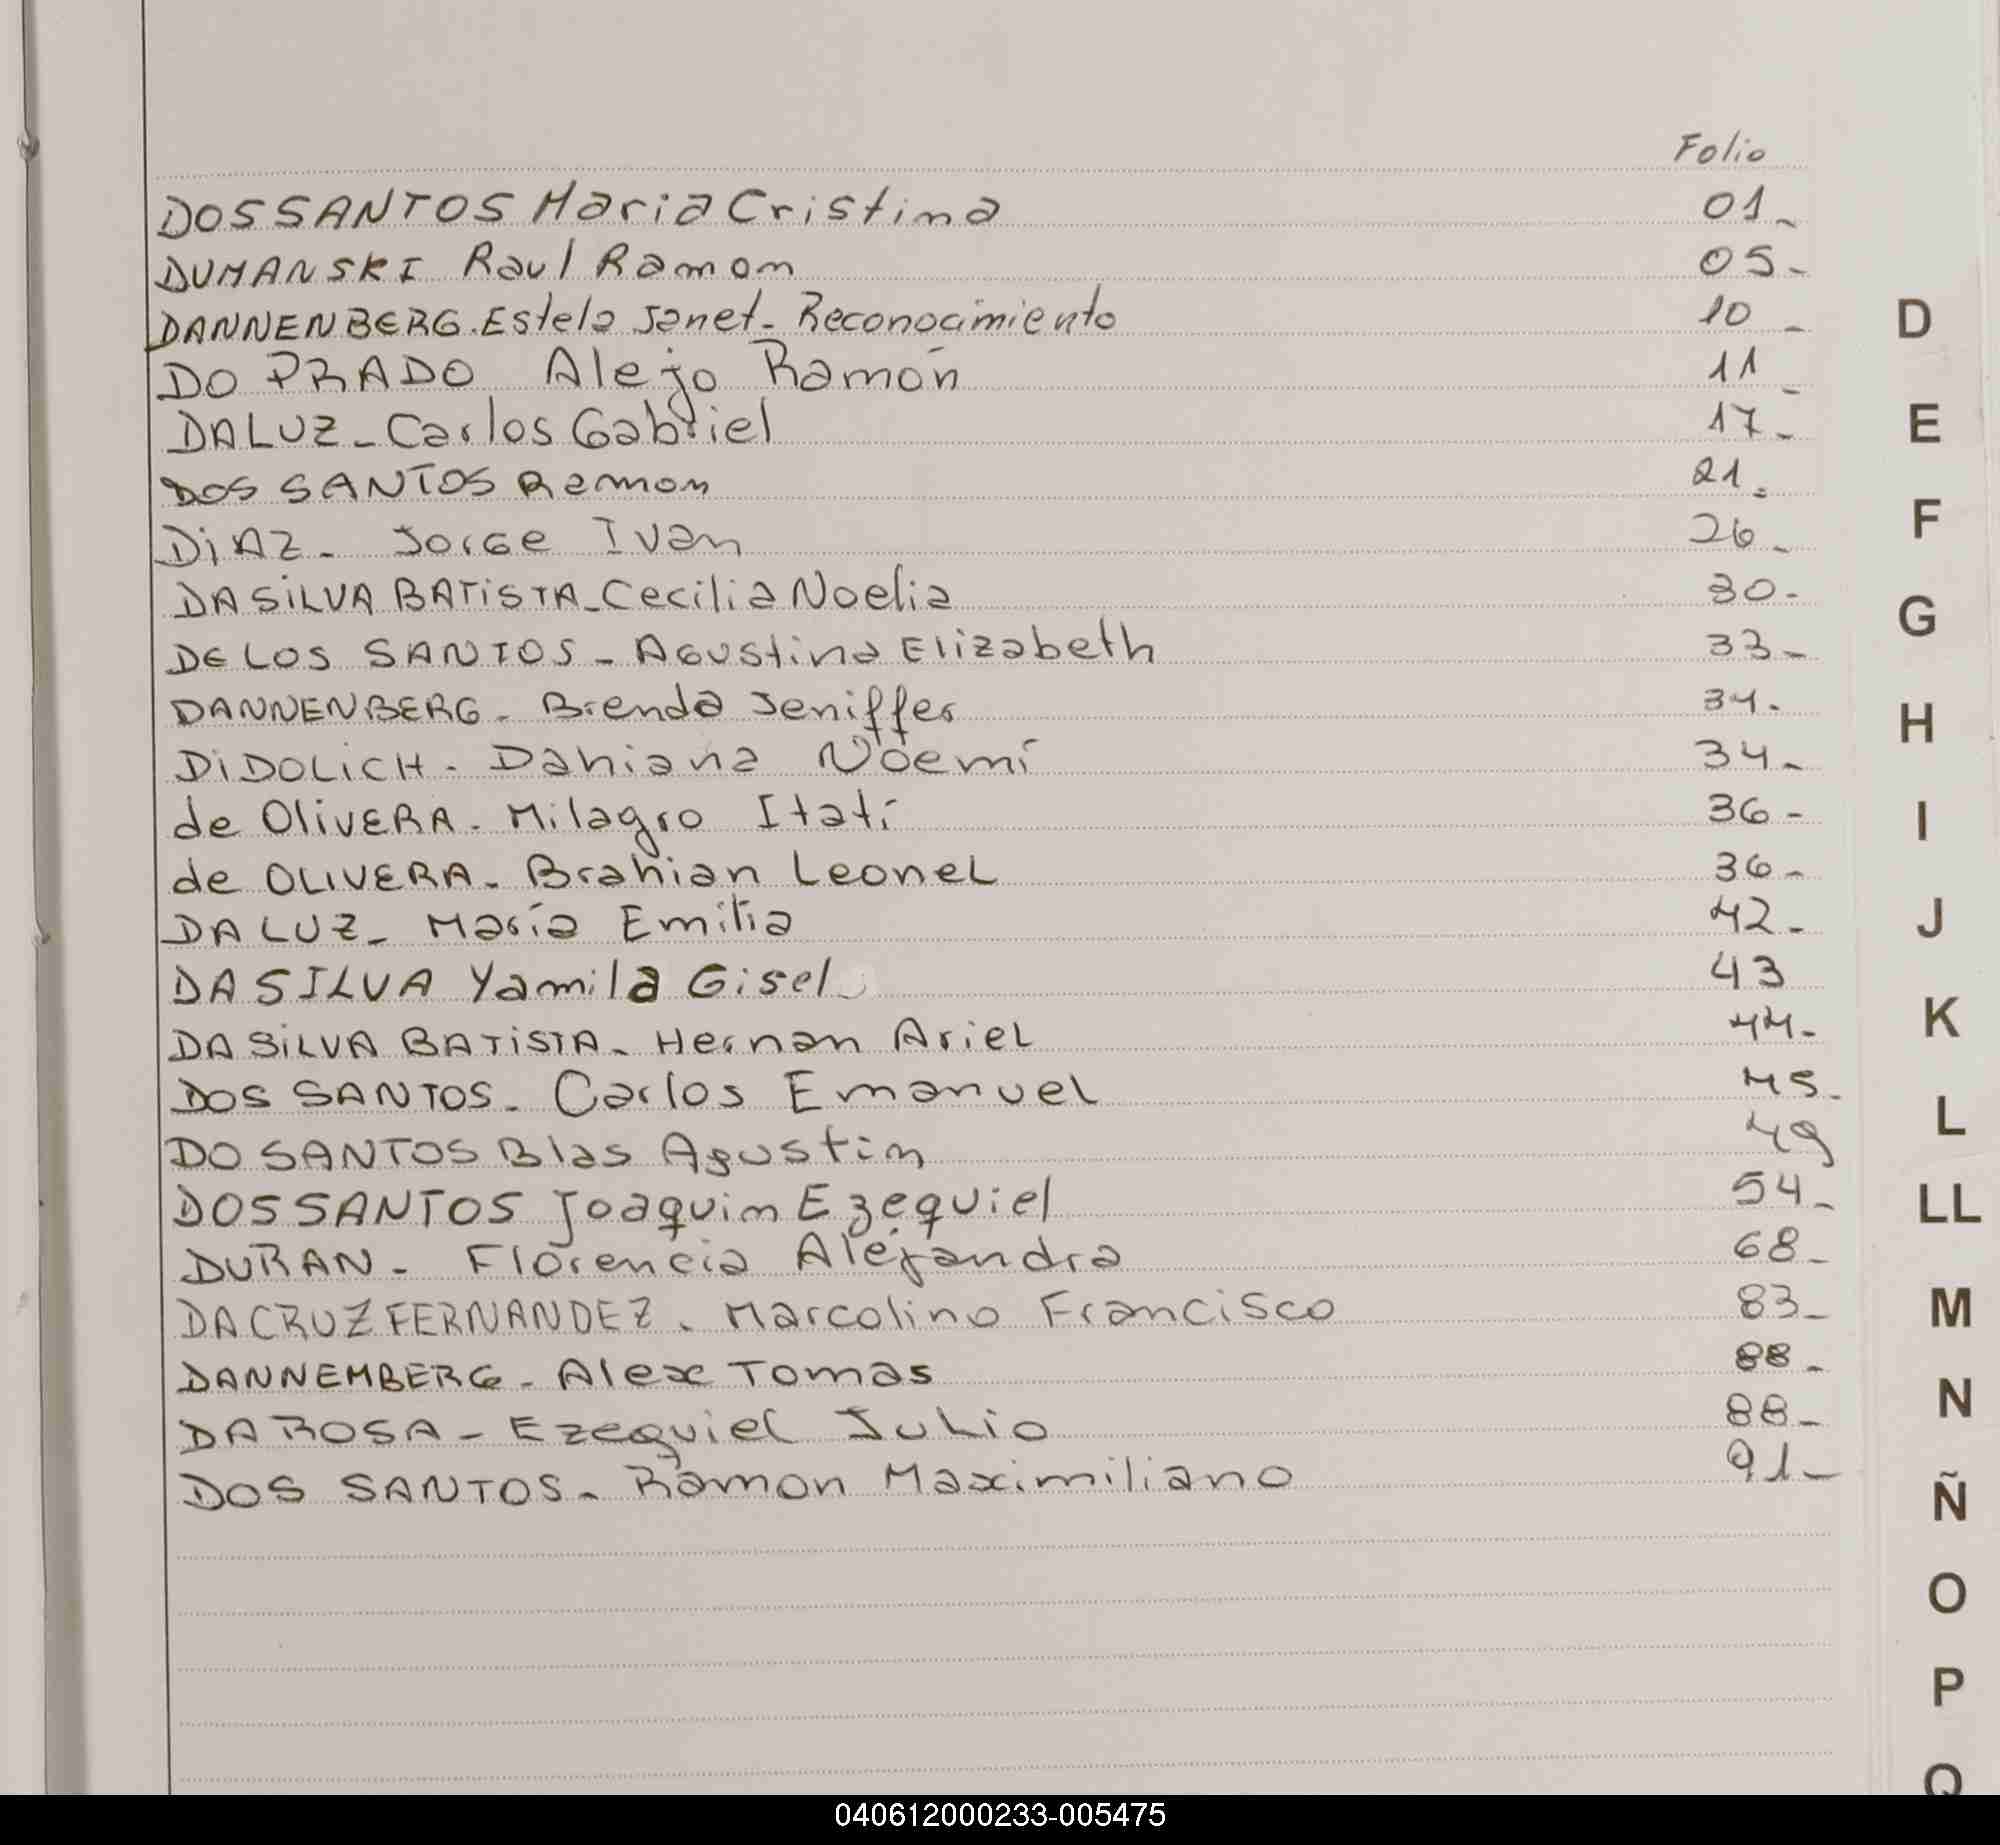 Folio
DOSSANTOS Maria Cristina 01-
DUMANSKI Raul Ramon 05-
DANNENBERG. Estela Janet- Reconocimiento 10 -
DO PRADO Alejo Ramón 11 -
DALUZ - Carlos Gabriel 17-
DOS SANTOS Ramon 21-
DiAZ- Jorge Ivan 26-
DA SiLVA BATiSTA- Cecilia Noelia 30-
DE LOS SANTOS - Agustina Elizabeth 33-
DANNENBERG. Brenda Jeniffer 34.
DiDOLiCH. Dahiana Noemí 34-
de OliVERA. Milagro Itatí 36-
de OLIVERA. Brahian Leonel 36-
DA LUZ- María Emilia 42-
DA SILVA Yamila Gisel 43
DA SiLVA BATiSTA- Hernan Ariel 44-
DOS SANTOS. Carlos Emanuel 45-
DO SANTOS Blas Agustin 49
DOSSANTOS Joaquin Ezequiel 54-
DURAN- Florencia Alejandra 68-
DACRUZ FERNANDEZ. Marcolino Francisco 83-
DANNEMBERG- Alex Tomas 88-
DA ROSA - Ezequiel Julio 88-
DOS SANTOS- Ramon Maximiliano 91-
D
E
F
G
H
I
J
K
L
LL
M
N
Ñ
O
P
Q
040612000233-005475